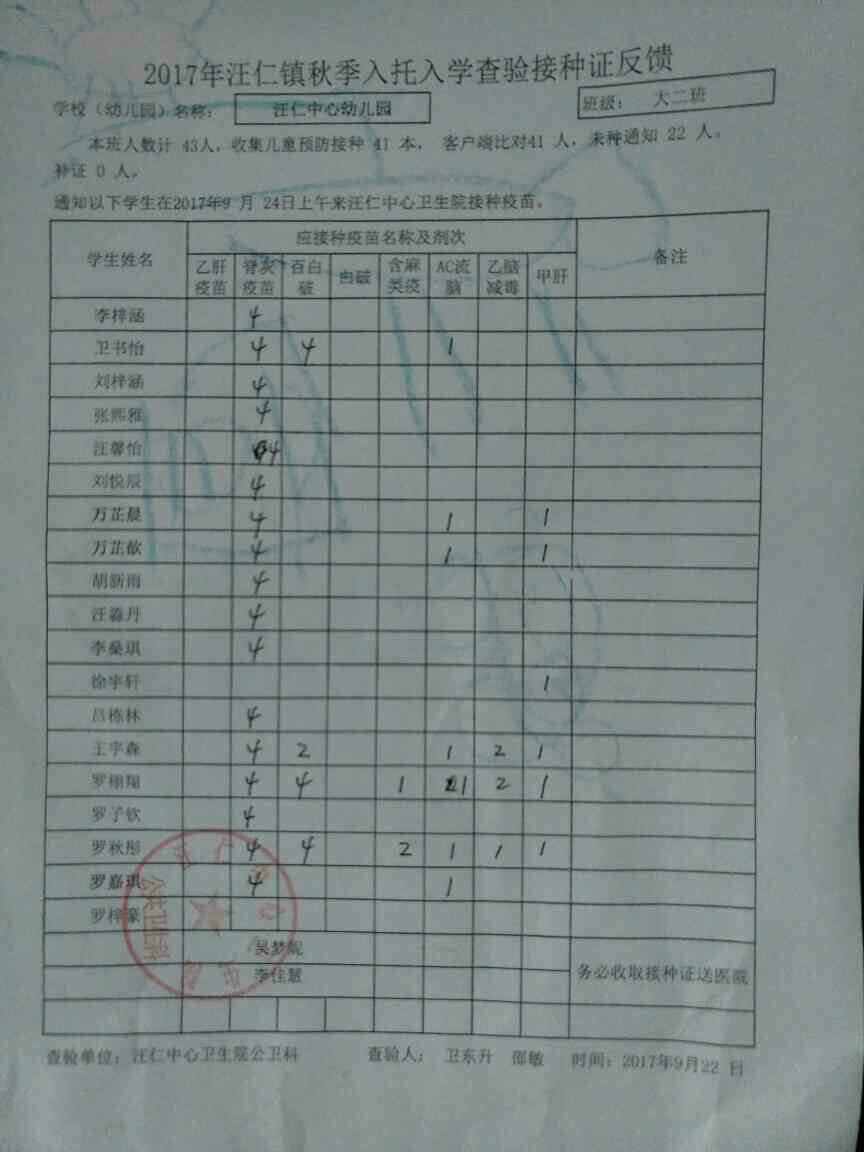 2017年汪仁镇秋季入托入学查验接种证反馈
学校（幼儿园）名称： 汪仁中心幼儿园 班级： 大二班
本班人数计 43人，收集儿童预防接种 41 本， 客户端比对41 人，未种通知 22 人。
补证 0 人。
通知以下学生在2017年9 月 24日上午来汪仁中心卫生院接种疫苗。
学生姓名 应接种疫苗名称及剂次 备注
乙肝疫苗 脊灰疫苗 百白破 白破 含麻类疫 AC流脑 乙脑减毒 甲肝
李梓涵 4
卫书怡 4 4 1
刘梓涵 4
张熙雅 4
汪馨怡 4
刘悦辰 4
万芷晨 4 1 1
万芷歆 4 1 1
胡新雨 4
汪淼丹 4
李燊琪 4
徐宇轩 1
吕栋林 4
王宇森 4 2 1 2 1
罗栩翔 4 4 1 1 2 1
罗子钦 4
罗秋彤 4 4 2 1 1 1
罗嘉琪 4 1
罗梓豪
吴梦妮
李佳慧 务必收取接种证送医院
公共卫生科
查验单位：汪仁中心卫生院公卫科 查验人： 卫东升 邵敏 时间：2017年9月22 日